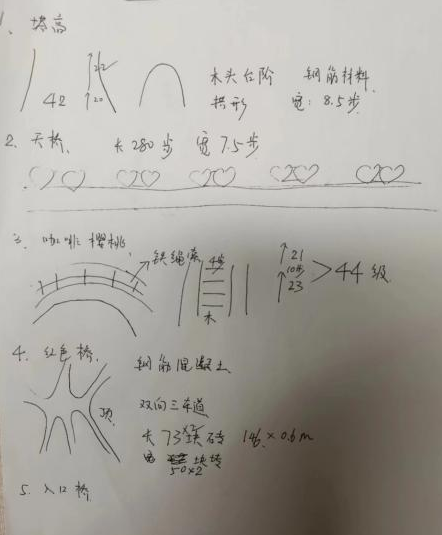 1、塔高
42
42
20
木头台阶 钢筋材料
拱形 宽：8.5步
2、天桥、 长280步 宽7.5步
三、咖啡樱桃
铁绳索
木
21
10步
23
44级
4、红色桥、 钢筋混凝土
顶
双向三车道
长73块砖 ×2 146×0.6m
宽 块砖
50×2
5、入口桥